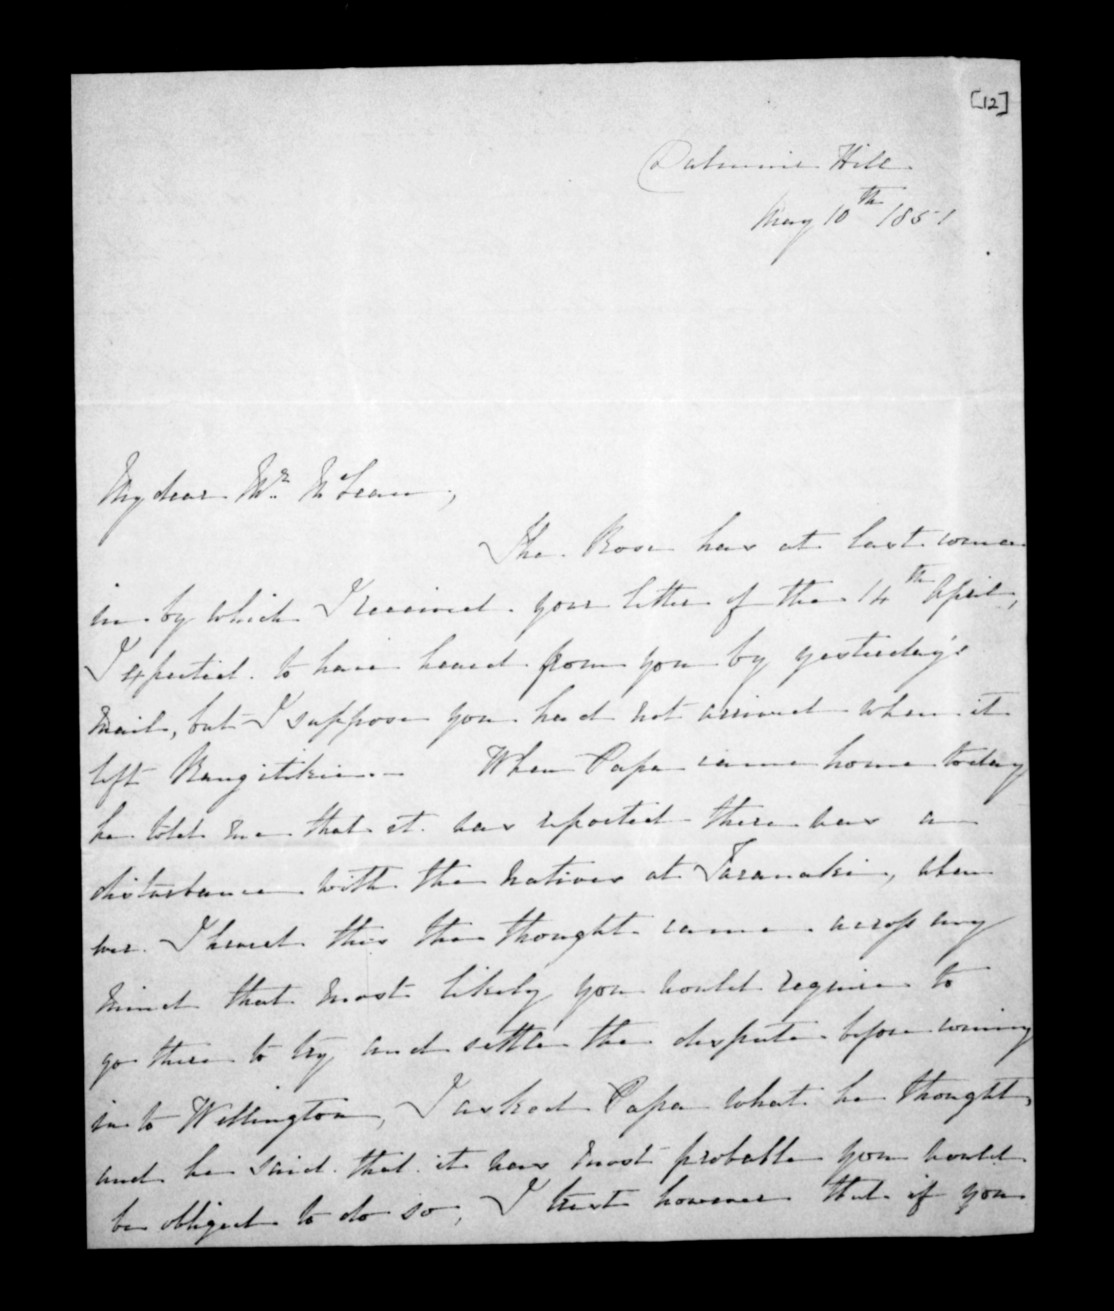 [12]
Dalmuir Hill
May 10th 1851
My dear Mr. McLean,
The Rose has at last come
in by which I received your letter of the 14th April,
I expected to have heard from you by yesterday's
mail, but I suppose you had not arrived when it
left Rangitikei. When Papa came home today
he told me that it was reported there was a
disturbance with the natives at Taranaki, when
ever I heard this the thought came across my
mind that most likely you would require to
go there to try and settle the dispute before coming
in to Wellington, I asked Papa what he thought,
and he said that it was most probable you would
be obliged to do so, I trust however that if you